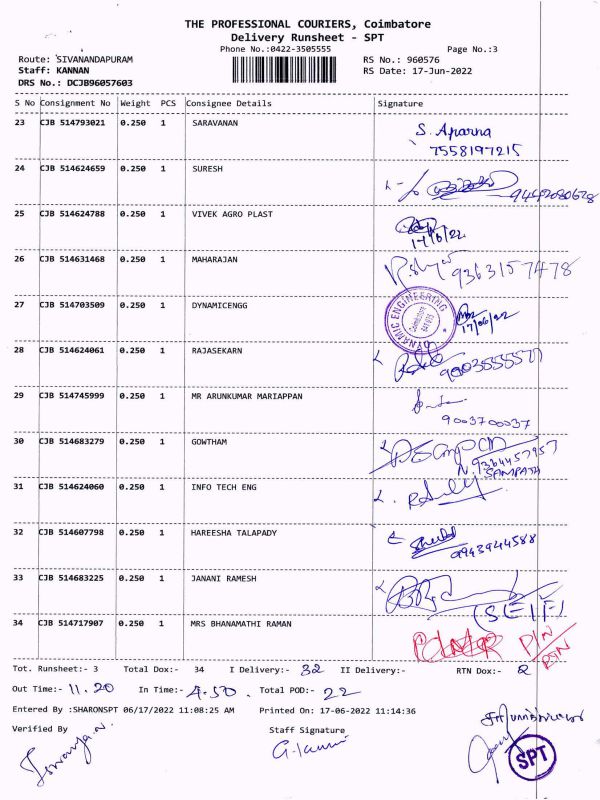 THE PROFESSIONAL COURIERS, Coimbatore
Delivery Runsheet - SPT
Phone No.:0422-3505555
Page No.:3
Route: SIVANANDAPURAM
RS No.: 960576
Staff: KANNAN
RS Date: 17-Jun-2022
DRS No.: DCJB96057603
S No Consignment No Weight PCS Consignee Details Signature
23 CJB 514793021 0.250 1 SARAVANAN S. Aparna
7558197215
24 CJB 514624659 0.250 1 SURESH
9442080678
25 CJB 514624788 0.250 1 VIVEK AGRO PLAST
17/6/22
26 CJB 514631468 0.250 1 MAHARAJAN 9363157478
27 CJB 514703509 0.250 1 DYNAMICENGG DYNAMIC ENGINEERING
17/06/22
28 CJB 514624061 0.250 1 RAJASEKARN
29 CJB 514745999 0.250 1 MR ARUNKUMAR MARIAPPAN
9003700037
30 CJB 514683279 0.250 1 GOWTHAM
9364457957
N. SAMPATH
31 CJB 514624060 0.250 1 INFO TECH ENG
32 CJB 514607798 0.250 1 HAREESHA TALAPADY
9943944588
33 CJB 514683225 0.250 1 JANANI RAMESH
(SELF)
34 CJB 514717907 0.250 1 MRS BHANAMATHI RAMAN P/N
RTN
Tot. Runsheet:- 3 Total Dox:- 34 I Delivery:- 32 II Delivery:- RTN Dox:- 2
Out Time:- 11.20 In Time:- 4.50. Total POD:- 22
Entered By :SHARONSPT 06/17/2022 11:08:25 AM Printed On: 17-06-2022 11:14:36
Verified By Staff Signature
SPT